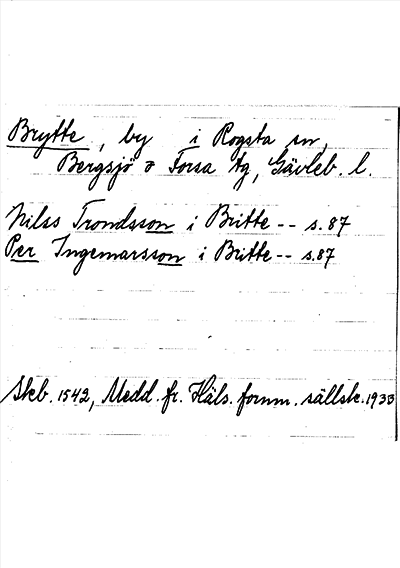 Brytte, by i Rogsta sn,
Bergsjö o Forsa tg, Gävleb. l.
Nilss Trondsson i Britte -- s. 87
Per Ingemarsson i Britte -- s. 87
Skb. 1542, Medd. fr. Häls. fornm. sällsk. 1933